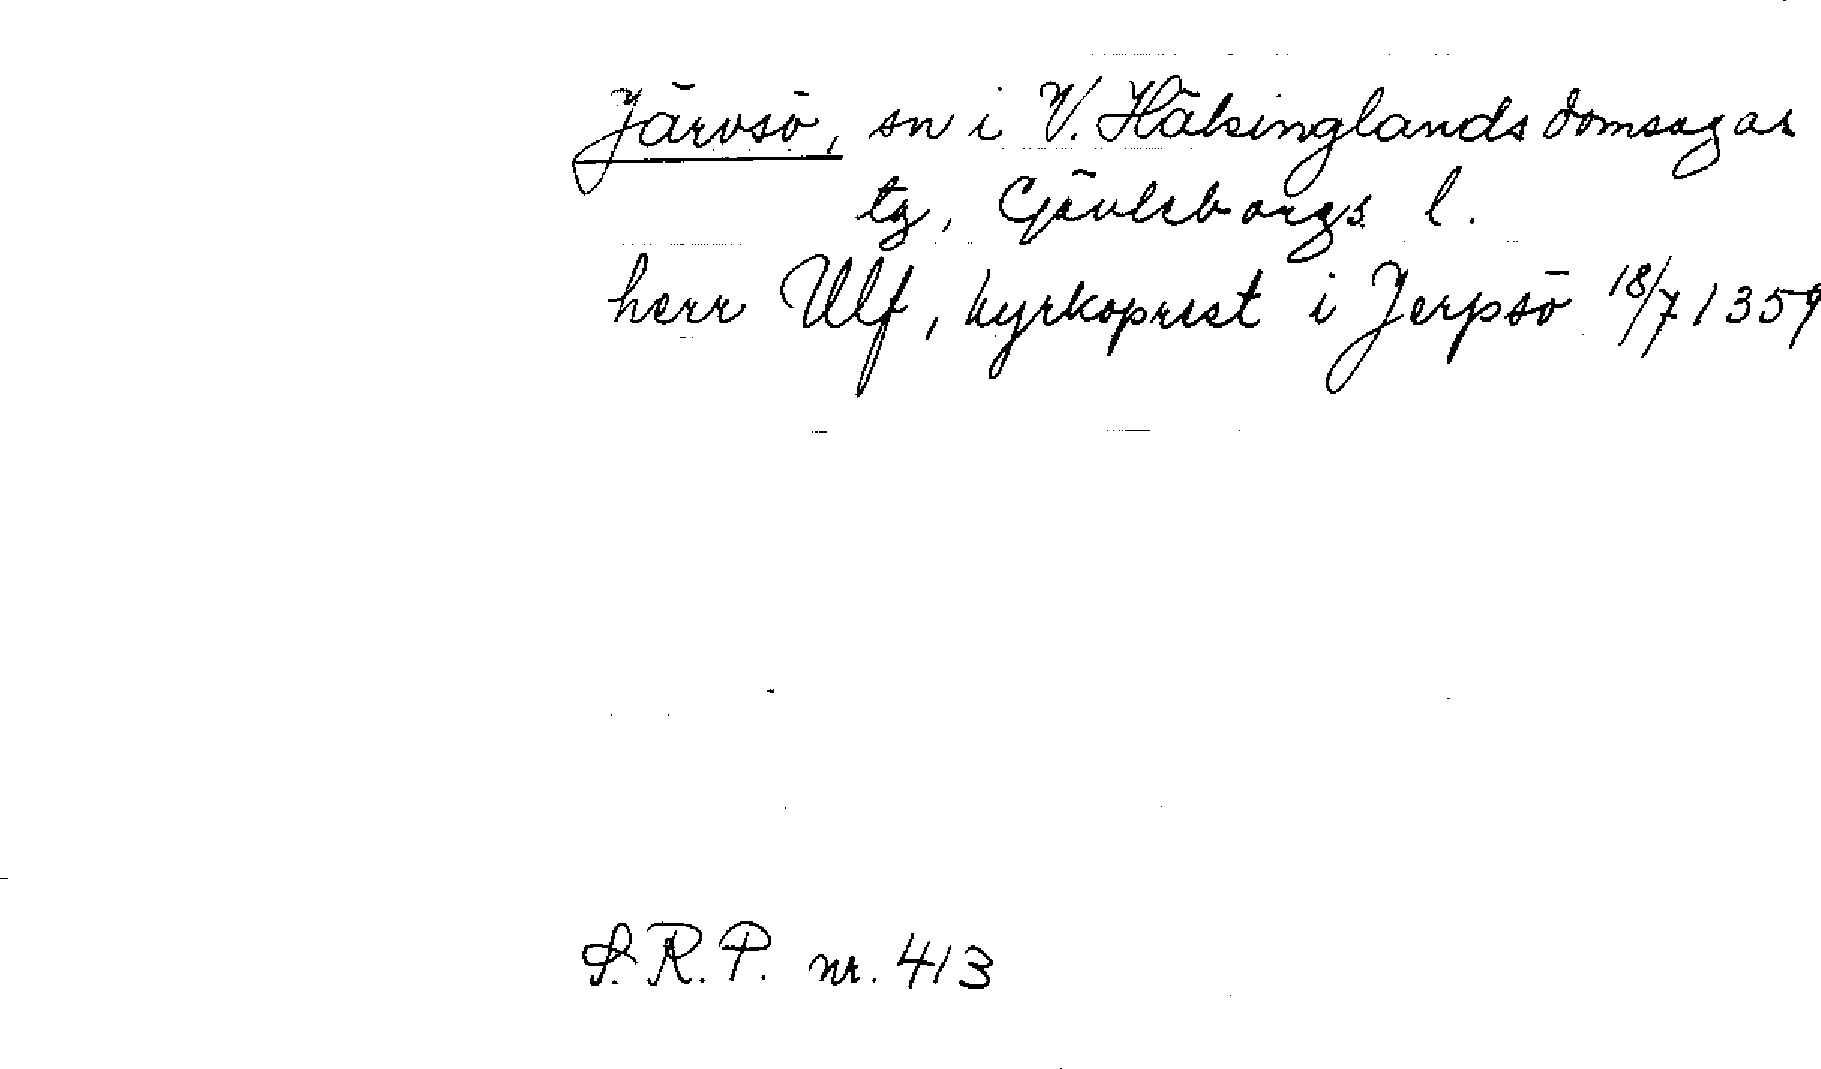 Järvsö, sn i V. Hälsinglands domsagas
tg, Gävleborgs l.
herr Ulf, kyrkoprest i Jerpsö 18/7 1359
S.R.P. nr. 413